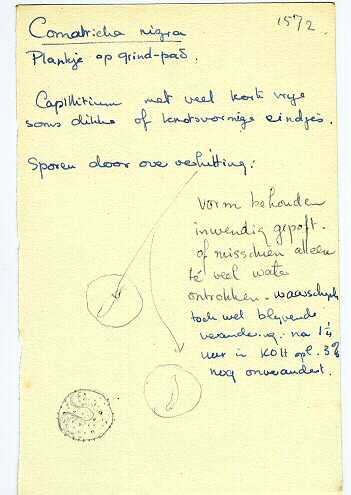 1572.
Comatricha nigra
Plankje op grind-pad.
Capillitium met veel korte vrije
soms dikke of knotsvormige eindjes.
Sporen door oververhitting:
Vorm behouden
inwendig gepoft.
of misschien alleen
té veel water
ontrokken. waarschijnlijk
toch wel blijvende
verandering. na 1¼
uur in KOH opl. 3%
nog onveranderd.